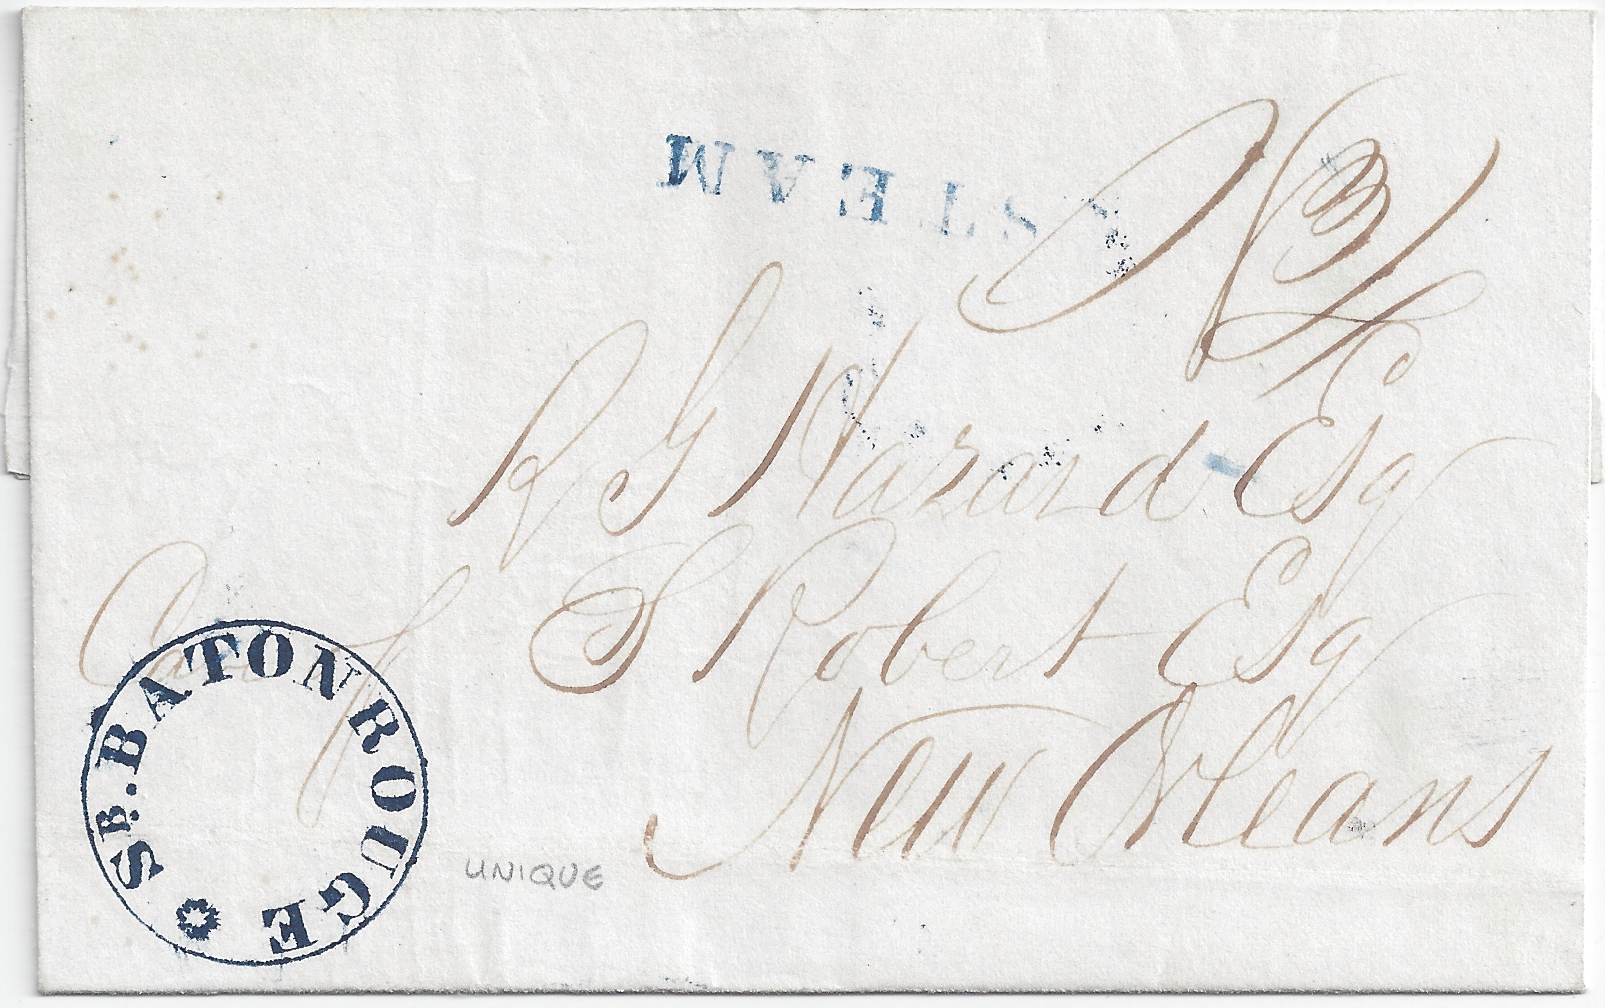 STEAM
R G Hazard Esq
Care of S Robert Esq
New Orleans
SB. BATON ROUGE
UNIQUE